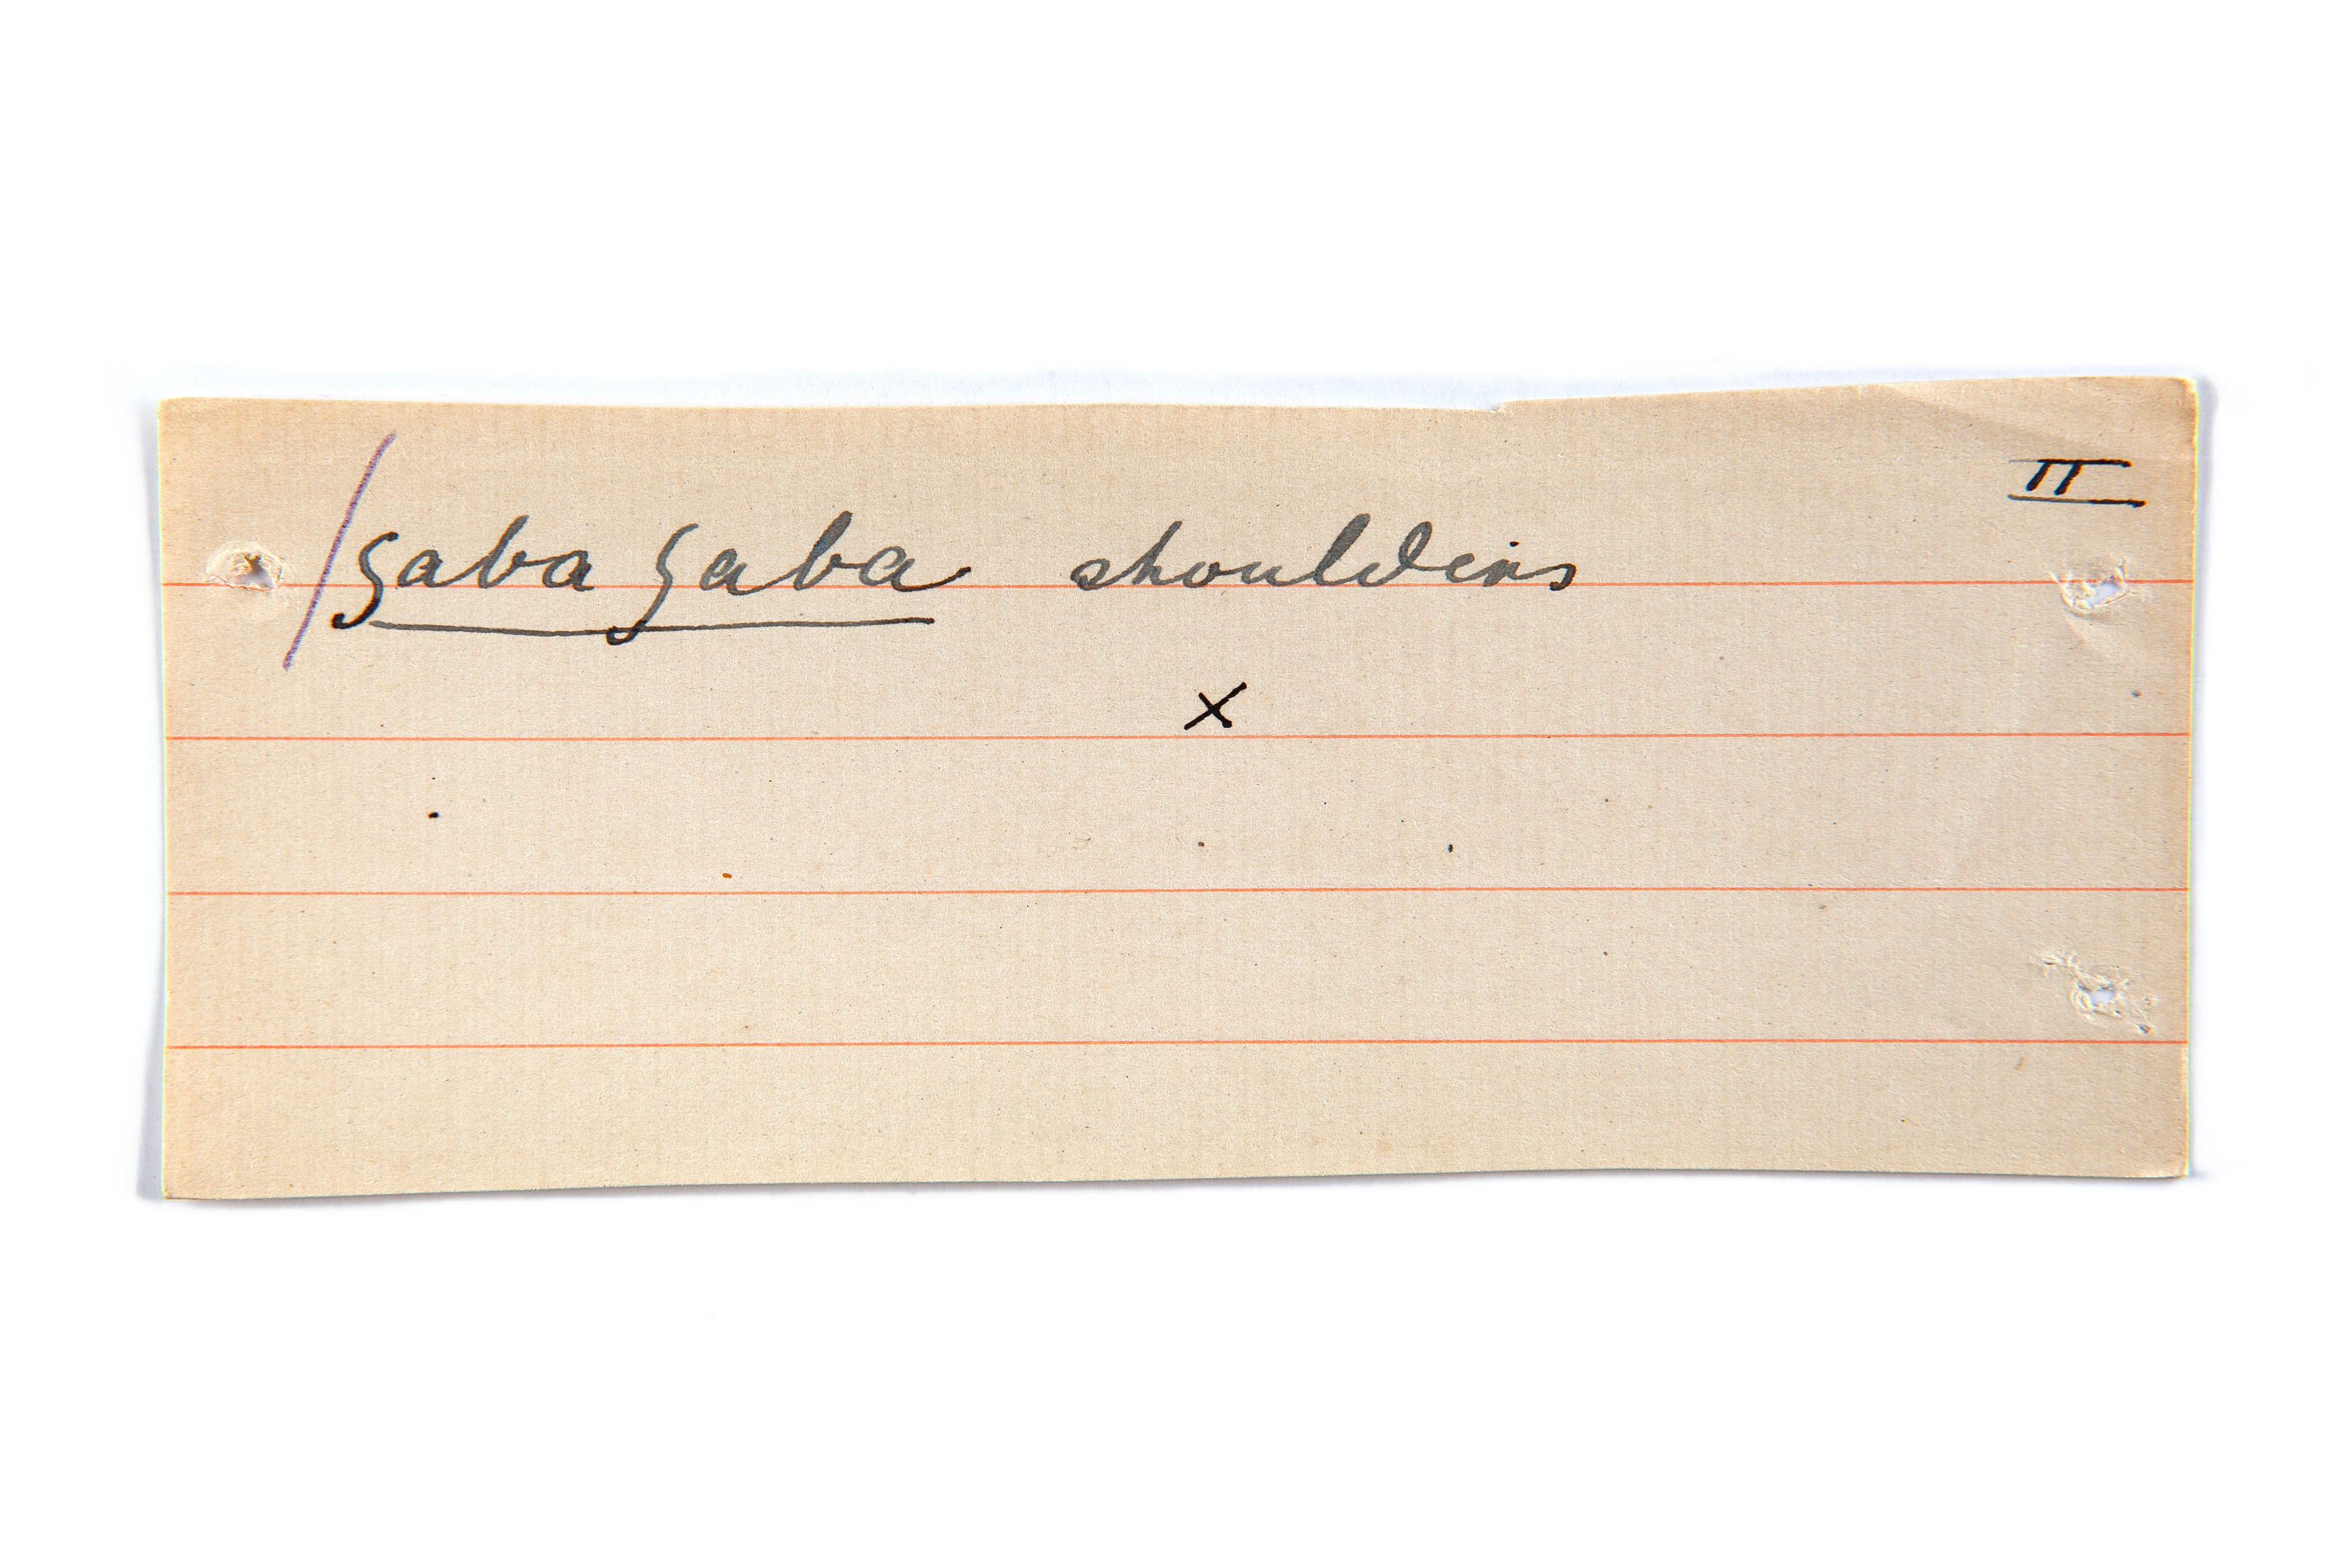 II
/gaba gaba shoulders
x